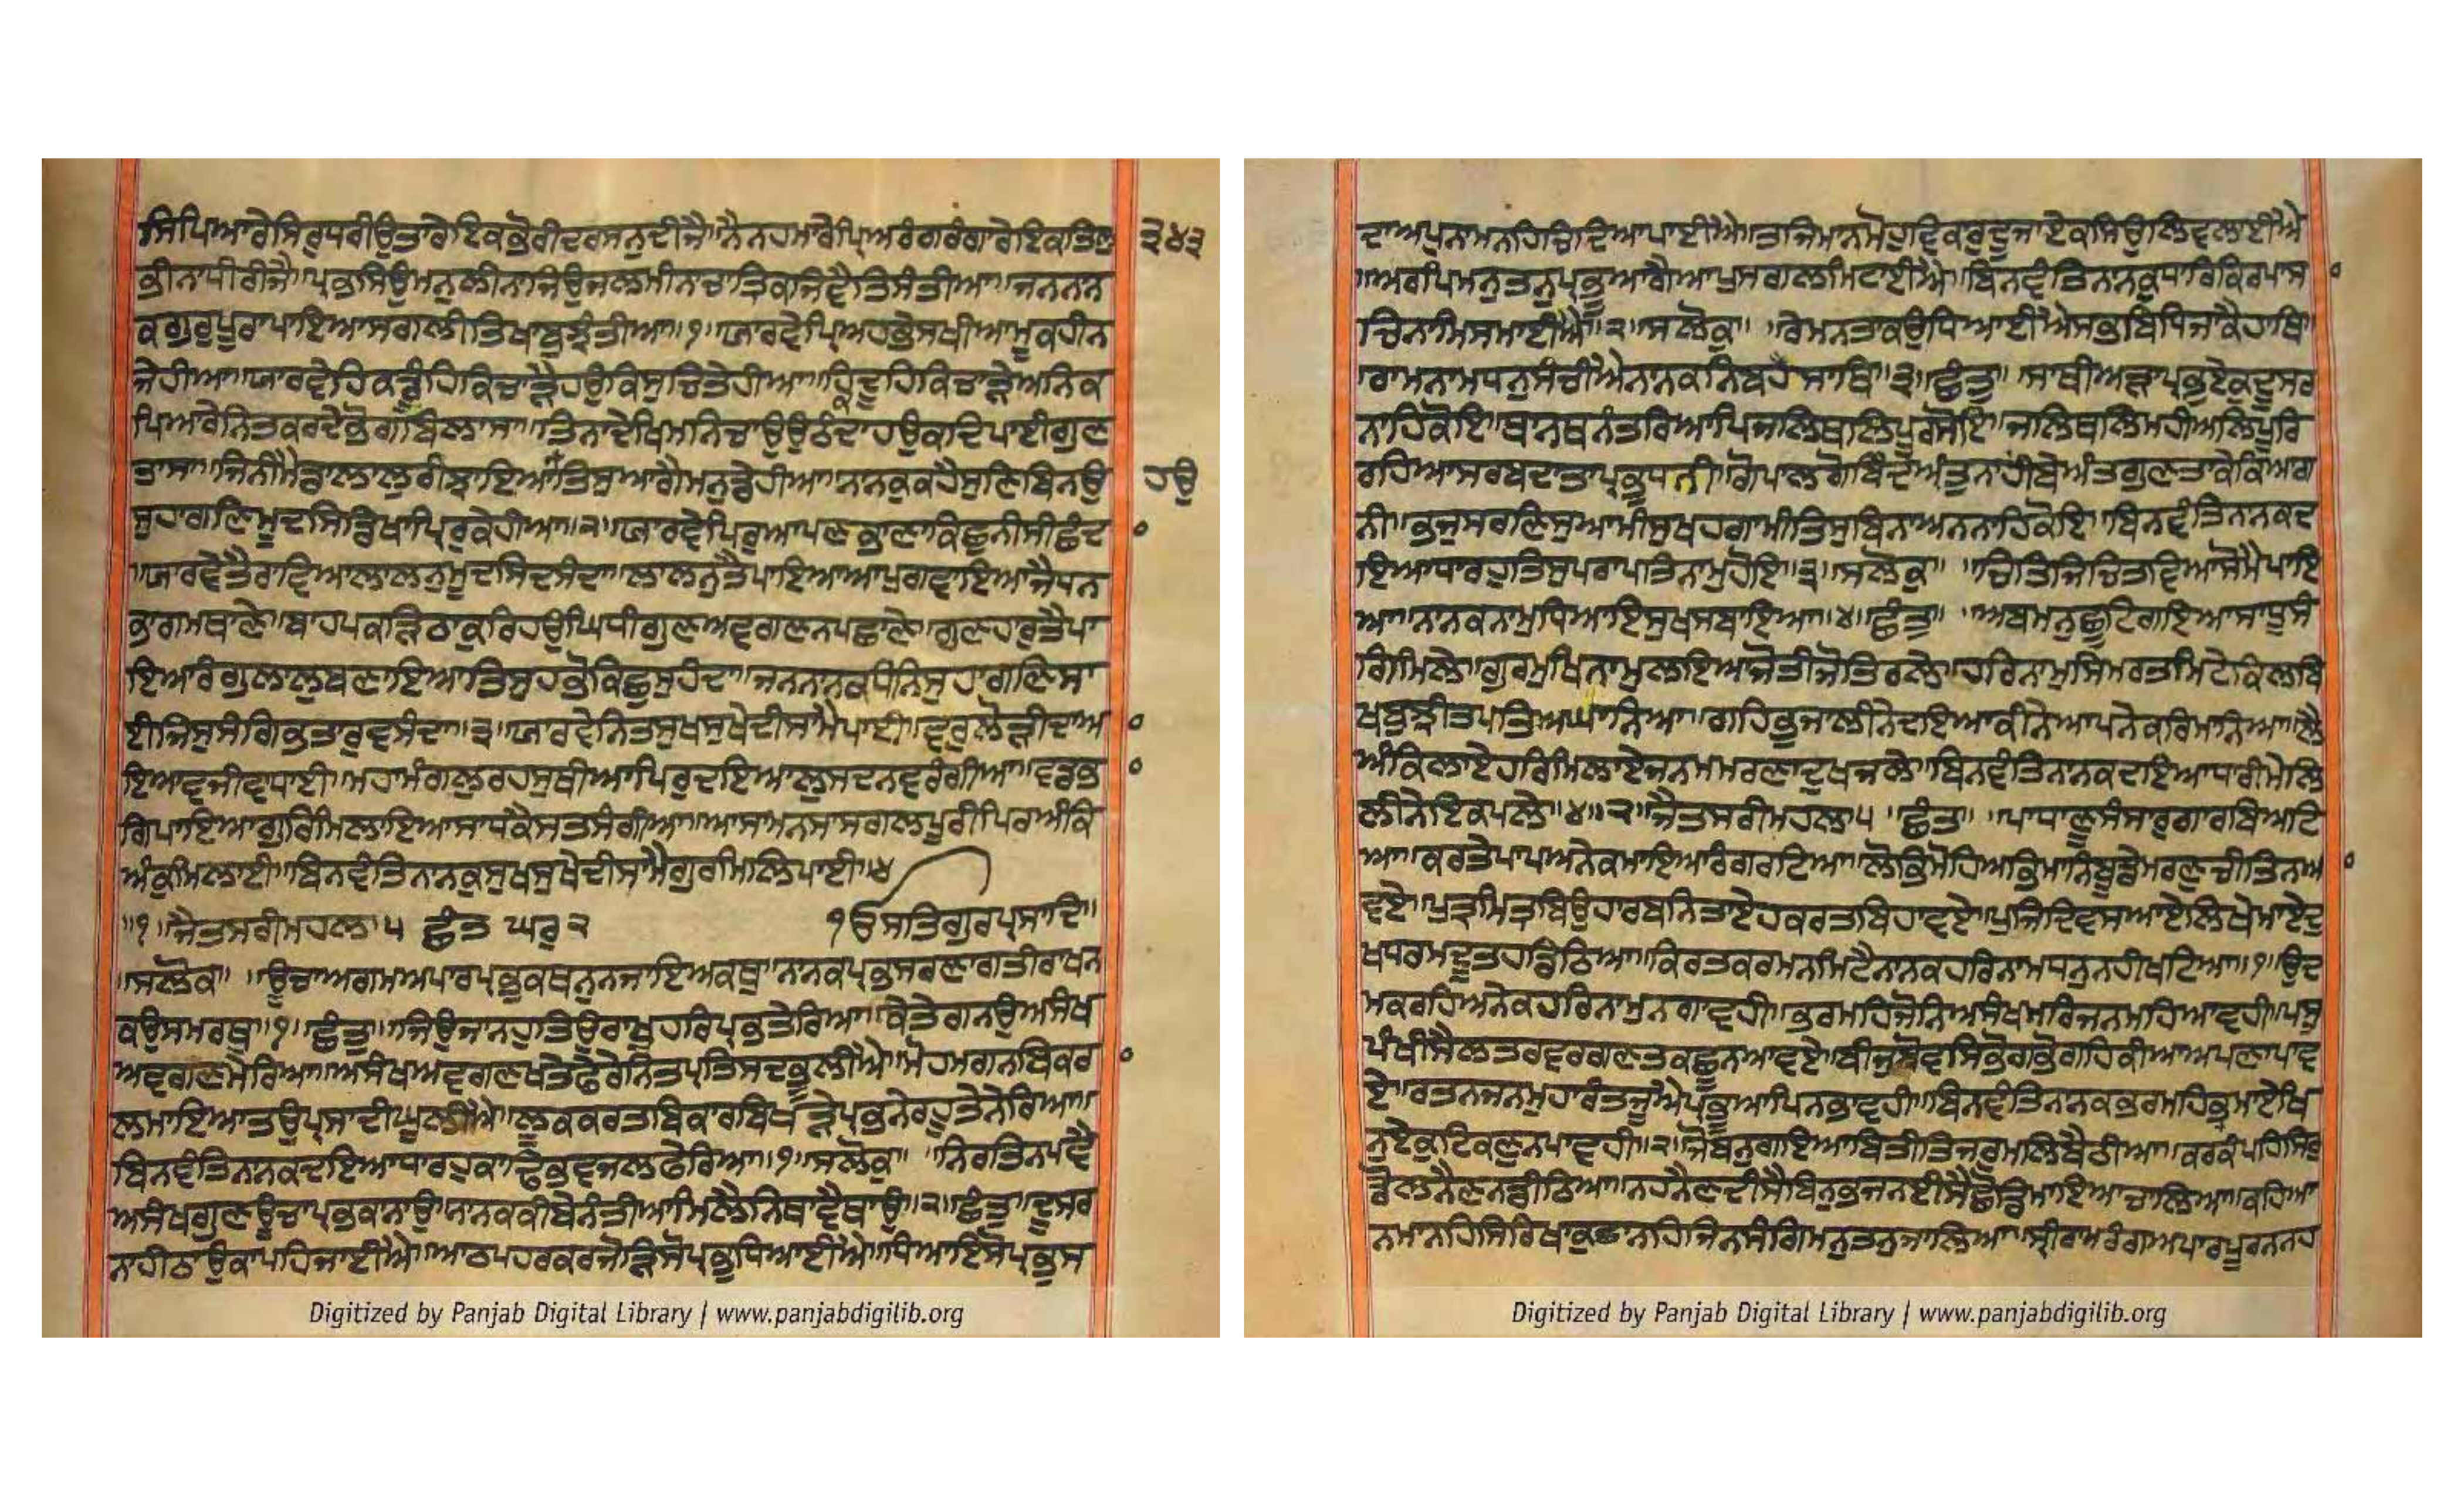 ਸਿਪਿਆਰੇਸਿਰੁਧਰੀਉਤਾਰੇਇਕਭੋਰੀਦਰਸਨੁਦੀਜੈ॥ਨੈਨਹਮਾਰੇਪ੍ਰਿਅਰੰਗਰੰਗਾਰੇਇਕਤਿਲੁ ੩੪੩
ਭੀਨਾਧੀਰੀਜੈ॥ਪ੍ਰਭਸਿਉਮਨੁਲੀਨਾਜਿਉਜਲਮੀਨਾਚਾਤ੍ਰਿਕਜਿਵੈਤਿਸੰਤੀਆ॥ਜਨਨਾਨ
ਕਗੁਰੁਪੂਰਾਪਾਇਆਸਗਲੀਤਿਖਾਬੁਝੰਤੀਆ॥੧॥ਯਾਰਵੇਪ੍ਰਿਅਹਭੇਸਖੀਆਮੂਕਹੀਨ
ਜੇਹੀਆ॥ਯਾਰਵੇਹਿਕਡੂੰਹਿਕਿਚਾੜੈਹਉਕਿਸੁਚਿਤੇਹੀਆ॥ਹਿਕਦੂਹਿਕਿਚਾੜੇਅਨਿਕ
ਪਿਆਰੇਨਿਤਕਰਦੇਭੋਗਬਿਲਾਸਾ॥ਤਿਨਾਦੇਖਿਮਨਿਚਾਉਉਠੰਦਾਹਉਕਦਿਪਾਈਗੁਣ
ਤਾਸਾ॥ਜਿਨੀਮੈਡਾਲਾਲੁਰੀਝਾਇਆਤਿਸੁਆਗੈਮਨੁਡੇਹੀਆ॥ਨਾਨਕੁਕਹੈਸੁਣਿਬਿਨਉ ਹਉ
ਸੁਹਾਗਣਿਮੂਦਸਿਡਿਖਾਪਿਰੁਕੇਹੀਆ॥੨॥ਯਾਰਵੇਪਿਰੁਆਪਣਭਾਣਾਕਿਛੁਨੀਸੀਛੰਦ
॥ਯਾਰਵੇਤੈਰਾਵਿਆਲਾਲਨੁਮੂਦਸਿਦਸੰਦਾ॥ਲਾਲਨੁਤੈਪਾਇਆਆਪੁਗਵਾਇਆਜੈਧਨ
ਭਾਗਮਥਾਣੇ॥ਬਾਹਪਕੜਿਠਾਕੁਰਿਹਉਘਿਧੀਗੁਣਅਵਗਣਨਪਛਾਣੇ॥ਗੁਣਹਾਰੁਤੈਪਾ
ਇਆਰੰਗੁਲਾਲੁਬਣਾਇਆਤਿਸੁਹਭੋਕਿਛੁਸੁਹੰਦਾ॥ਜਨਨਾਨਕਧੰਨਿਸੁਹਾਗਣਿਸਾ
ਈਜਿਸੁਸੰਗਿਭਤਾਰੁਵਸੰਦਾ॥੩॥ਯਾਰਵੇਨਿਤਸੁਖਸੁਖੇਦੀਸਾਮੈਪਾਈ॥ਵਰੁਲੋੜੀਦਾਆ
ਇਆਵਜੀਵਾਧਾਈ॥ਮਹਾਮੰਗਲੁਰਹਸੁਥੀਆਪਿਰੁਦਇਆਲੁਸਦਨਵਰੰਗੀਆ॥ਵਡਭਾ
ਗਿਪਾਇਆਗੁਰਿਮਿਲਾਇਆਸਾਧਕੈਸਤਸੰਗੀਆ॥ਆਸਾਮਨਸਾਸਗਲਪੂਰੀਪਿਰਅੰਕਿ
ਅੰਕੁਮਿਲਾਈ॥ਬਿਨਵੰਤਿਨਾਨਕੁਸੁਖਸੁਖੇਦੀਸਾਮੈਗੁਰਮਿਲਿਪਾਈ॥੪
॥੧॥ਜੈਤਸਰੀਮਹਲਾ੫ ਛੰਤ ਘਰੁ੨ ੴਸਤਿਗੁਰਪ੍ਰਸਾਦਿ॥
॥ਸਲੋਕਾ॥ ॥ਊਚਾਅਗਮਅਪਾਰਪ੍ਰਭੁਕਥਨੁਨਜਾਇਅਕਥੁ॥ਨਾਨਕਪ੍ਰਭਸਰਣਾਗਤੀਰਾਖਨ
ਕਉਸਮਰਥੁ॥੧॥ਛੰਤੁ॥ਜਿਉਜਾਨਹੁਤਿਉਰਾਖੁਹਰਿਪ੍ਰਭਤੇਰਿਆ॥ਕੇਤੇਗਨਉਅਸੰਖ
ਅਵਗਣਮੇਰਿਆ॥ਅਸੰਖਅਵਗਣਖਤੇਫੇਰੇਨਿਤਪ੍ਰਤਿਸਦਭੂਲੀਐ॥ਮੋਹਮਗਨਬਿਕਰਾ
ਲਮਾਇਆਤਉਪ੍ਰਸਾਦੀਘੂਲੀਐ॥ਲੂਕਕਰਤਬਿਕਾਰਬਿਖੜੇਪ੍ਰਭਨੇਰਹੂਤੇਨੇਰਿਆ॥
ਬਿਨਵੰਤਿਨਾਨਕਦਇਆਧਾਰਹੁਕਾਢਿਭਵਜਲਫੇਰਿਆ॥੧॥ਸਲੋਕੁ॥ ॥ਨਿਰਤਿਨਪਵੈ
ਅਸੰਖਗੁਣਊਚਾਪ੍ਰਭਕਾਨਾਉ॥ਨਾਨਕਕੀਬੇਨੰਤੀਆਮਿਲੈਨਿਥਾਵੈਥਾਉ॥੨॥ਛੰਤੁ॥ਦੂਸਰ
ਨਾਹੀਠਾਉਕਾਪਹਿਜਾਈਐ॥ਆਠਪਹਰਕਰਜੋੜਿਸੋਪ੍ਰਭੁਧਿਆਈਐ॥ਧਿਆਇਸੋਪ੍ਰਭੁਸ
ਦਾਅਪੁਨਾਮਨਹਿਚਿੰਦਿਆਪਾਈਐ॥ਤਜਿਮਾਨਮੋਹੁਵਿਕਾਰੁਦੂਜਾਏਕਸਿਉਲਿਵਲਾਈਐ
॥ਅਰਪਿਮਨੁਤਨੁਪ੍ਰਭੂਆਗੈਆਪੁਸਗਲਮਿਟਾਈਐ॥ਬਿਨਵੰਤਿਨਾਨਕੁਧਾਰਿਕਿਰਪਾਸਾ
ਚਿਨਾਮਿਸਮਾਈਐ॥੨॥ਸਲੋਕੁ॥ ॥ਰੇਮਨਤਾਕਉਧਿਆਈਐਸਭਬਿਧਿਜਾਕੈਹਾਥਿ॥
ਰਾਮਨਾਮਧਨੁਸੰਚੀਐਨਾਨਕਨਿਬਹੈਸਾਥਿ॥੩॥ਛੰਤੁ॥ ॥ਸਾਥੀਅੜਾਪ੍ਰਭੁਏਕੁਦੂਸਰ
ਨਾਹਿਕੋਇ॥ਥਾਨਥਨੰਤਰਿਆਪਿਜਲਿਥਲਿਪੂਰਸੋਇ॥ਜਲਿਥਲਿਮਹੀਅਲਿਪੂਰਿ
ਰਹਿਆਸਰਬਦਾਤਾਪ੍ਰਭੁਧਨੀ॥ਗੋਪਾਲਗੋਬਿੰਦਅੰਤੁਨਾਹੀਬੇਅੰਤਗੁਣਤਾਕੇਕਿਆਗ
ਨੀ॥ਭਜੁਸਰਣਿਸੁਆਮੀਸੁਖਹਗਾਮੀਤਿਸੁਬਿਨਾਅਨਨਾਹਿਕੋਇ॥ਬਿਨਵੰਤਿਨਾਨਕਦ
ਇਆਧਾਰਹੁਤਿਸੁਪਰਾਪਤਿਨਾਮੁਹੋਇ॥੩॥ਸਲੋਕੁ॥ ॥ਚਿਤਿਜਿਚਿਤਵਿਆਸੋਮੈਪਾਇ
ਆ॥ਨਾਨਕਨਾਮੁਧਿਆਇਸੁਖਸਬਾਇਆ॥੪॥ਛੰਤੁ॥ ॥ਅਬਮਨੁਛੂਟਿਗਇਆਸਾਧੂਸੰ
ਗਿਮਿਲੇ॥ਗੁਰਮੁਖਿਨਾਮੁਲਇਆਜੋਤੀਜੋਤਿਰਲੇ॥ਹਰਿਨਾਮੁਸਿਮਰਤਮਿਟੇਕਿਲਬਿ
ਖਬੁਝੀਤਪਤਿਅਘਾਨਿਆ॥ਗਹਿਭੁਜਾਲੀਨੇਦਇਆਕੀਨੇਆਪਨੇਕਰਿਮਾਨਿਆ॥ਲੈ
ਅੰਕਿਲਾਏਹਰਿਮਿਲਾਏਜਨਮਮਰਣਾਦੁਖਜਲੇ॥ਬਿਨਵੰਤਿਨਾਨਕਦਇਆਧਾਰੀਮੇਲਿ
ਲੀਨੇਇਕਪਲੇ॥੪॥੨॥ਜੈਤਸਰੀਮਹਲਾ੫ ॥ਛੰਤੁ॥ ॥ਪਾਧਾਣੂਸੰਸਾਰੁਗਾਰਬਿਅਟਿ
ਆ॥ਕਰਤੇਪਾਪਅਨੇਕਮਾਇਆਰੰਗਰਟਿਆ॥ਲੋਭਿਮੋਹਿਅਭਿਮਾਨਿਬੂਡੇਮਰਣੁਚੀਤਿਨਆ
ਵਏ॥ਪੁਤ੍ਰਮਿਤ੍ਰਬਿਉਹਾਰਬਨਿਤਾਏਹਕਰਤਬਿਹਾਵਏ॥ਪੁਜਿਦਿਵਸਆਏਲਿਖੇਮਾਏਦੁ
ਖਧਰਮਦੂਤਹਡਿਠਿਆ॥ਕਿਰਤਕਰਮਨਮਿਟੈਨਾਨਕਹਰਿਨਾਮਧਨੁਨਹੀਖਟਿਆ॥੧॥ਉਦ
ਮਕਰਹਿਅਨੇਕਹਰਿਨਾਮੁਨਗਾਵਹੀ॥ਭਰਮਹਿਜੋਨਿਅਸੰਖਮਰਿਜਨਮਹਿਆਵਹੀ॥ਪਸੁ
ਪੰਖੀਸੈਲਤਰਵਰਗਣਤਕਛੂਨਆਵਏ॥ਬੀਜੁਬੋਵਸਿਭੋਗਭੋਗਹਿਕੀਆਅਪਣਾਪਾਵ
ਏ॥ਰਤਨਜਨਮੁਹਾਰੰਤਜੂਐਪ੍ਰਭੂਆਪਿਨਭਾਵਹੀ॥ਬਿਨਵੰਤਿਨਾਨਕਭਰਮਹਿਭ੍ਰਮਾਏਖਿ
ਨੁਏਕੁਟਿਕਣੁਨਪਾਵਹੀ॥੨॥ਜੋਬਨੁਗਇਆਬਿਤੀਤਿਜਰੁਮਲਿਬੈਠੀਆ॥ਕਰਕੰਪਹਿਸਿਰੁ
ਡੋਲਨੈਣਨਡੀਠਿਆ॥ਨਹਨੈਣਦੀਸੈਬਿਨੁਭਜਨਈਸੈਛੋਡਿਮਾਇਆਚਾਲਿਆ॥ਕਹਿਆ
ਨਮਾਨਹਿਸਿਰਿਖਾਕੁਛਾਨਹਿਜਿਨਸੰਗਿਮਨੁਤਨੁਜਾਲਿਆ॥ਸ੍ਰੀਰਾਮਰੰਗਅਪਾਰਪੂਰਨਨਹ
Digitized by Panjab Digital Library | www.panjabdigilib.org
Digitized by Panjab Digital Library | www.panjabdigilib.org